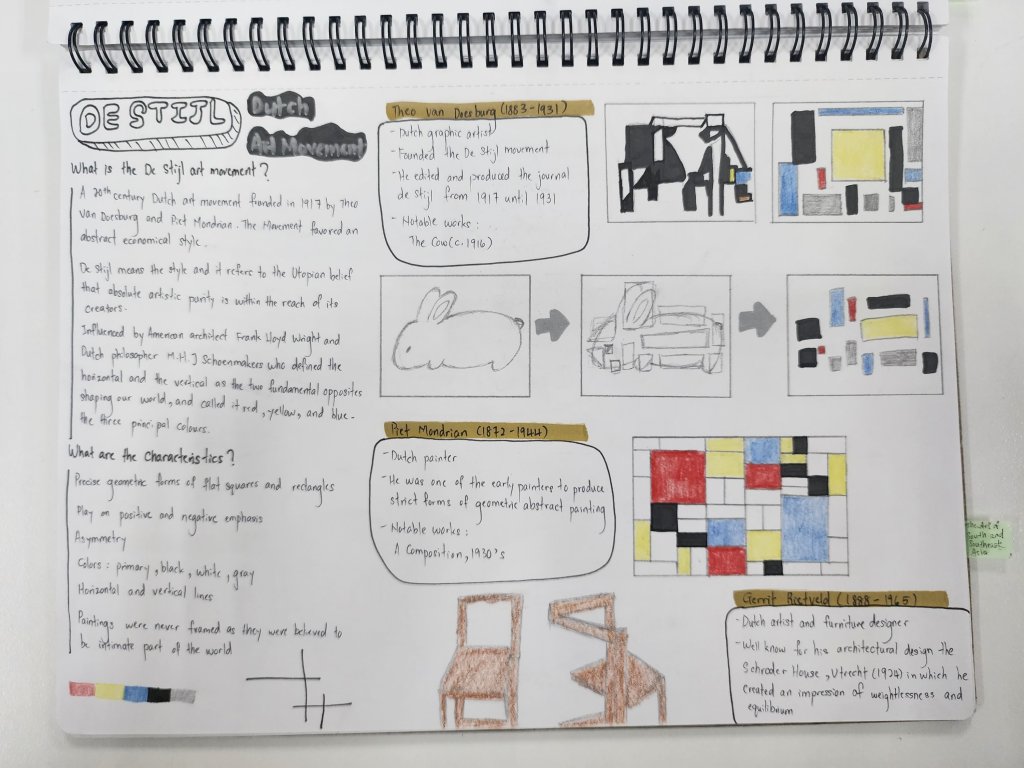 DE STIJL
Dutch
Art Movement
What is the De Stijl art movement?
A 20th century Dutch art movement founded in 1917 by Theo
van Doesburg and Piet Mondrian. The Movement favored an
abstract economical style.
De Stijl means the style and it refers to the Utopian belief
that absolute artistic purity is within the reach of its
creators.
Influenced by American architect Frank Lloyd Wright and
Dutch philosopher M.H.J Schoenmakers who defined the
horizontal and the vertical as the two fundamental opposites
shaping our world, and called it red, yellow, and blue-
the three principal colours.
What are the Characteristics?
Precise geometric forms of flat squares and rectangles
Play on positive and negative emphasis
Asymmetry
Colors: primary, black, white, gray
Horizontal and vertical lines
Paintings were never framed as they were believed to
be intimate part of the world
Theo van Doesburg (1883-1931)
- Dutch graphic artist
- Founded the De Stijl movement
- He edited and produced the journal
de stijl from 1917 until 1931
- Notable works:
The Cow (c.1916)
Piet Mondrian (1872-1944)
- Dutch painter
- He was one of the early painters to produce
strict forms of geometric abstract painting
- Notable works:
A Composition, 1930's
Gerrit Rietveld (1888-1965)
- Dutch artist and furniture designer
- Well know for his architectural design the
Schroder House, Utrecht (1924) in which he
created an impression of weightlessness and
equilibrium
the Art of
South and
Southeast
Asia